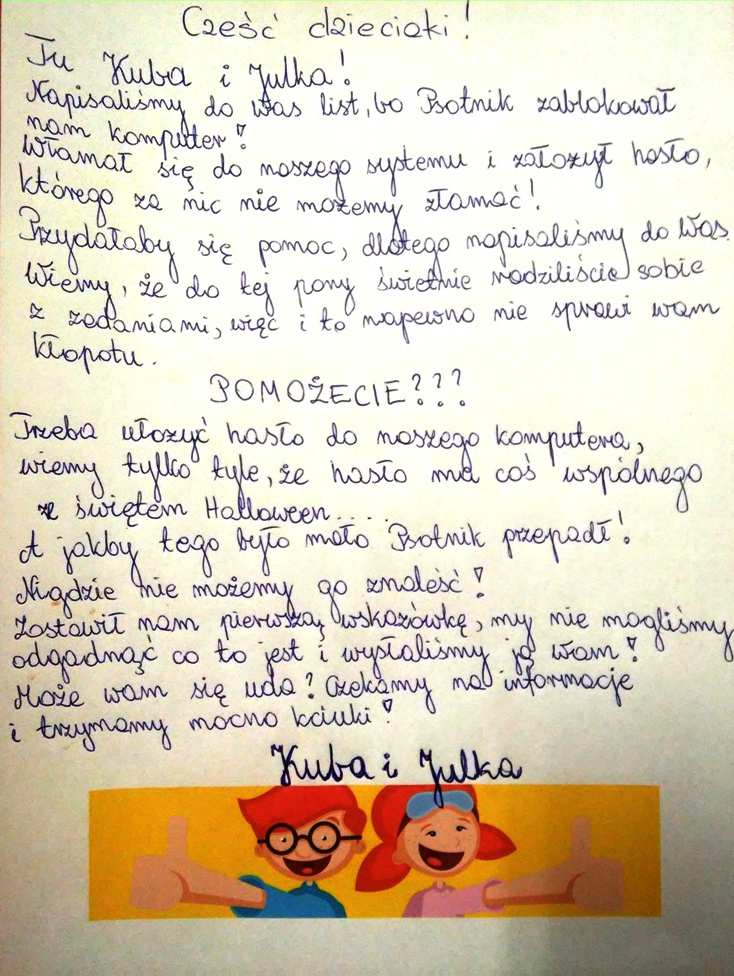 Cześć dzieciaki!
Tu Kuba i Julka!
Napisaliśmy do was list, bo Psotnik zablokował
nam komputer!
Włamał się do naszego systemu i założył hasło,
którego za nic nie możemy złamać!
Przydałaby się pomoc, dlatego napisaliśmy do Was.
Wiemy, że do tej pory świetnie radziliście sobie
z zadaniami, więc i to napewno nie sprawi wam
kłopotu.
POMOŻECIE???
Trzeba ułożyć hasło do naszego komputera,
wiemy tylko tyle, że hasło ma coś wspólnego
ze świętem Halloween....
A jakby tego było mało Psotnik przepadł!
Nigdzie nie możemy go znaleść!
Zostawił nam pierwszą wskazówkę, my nie mogliśmy
odgadnąć co to jest i wysłaliśmy ją wam!
Może wam się uda? Czekamy na informacje
i trzymamy mocno kciuki!
Kuba i Julka